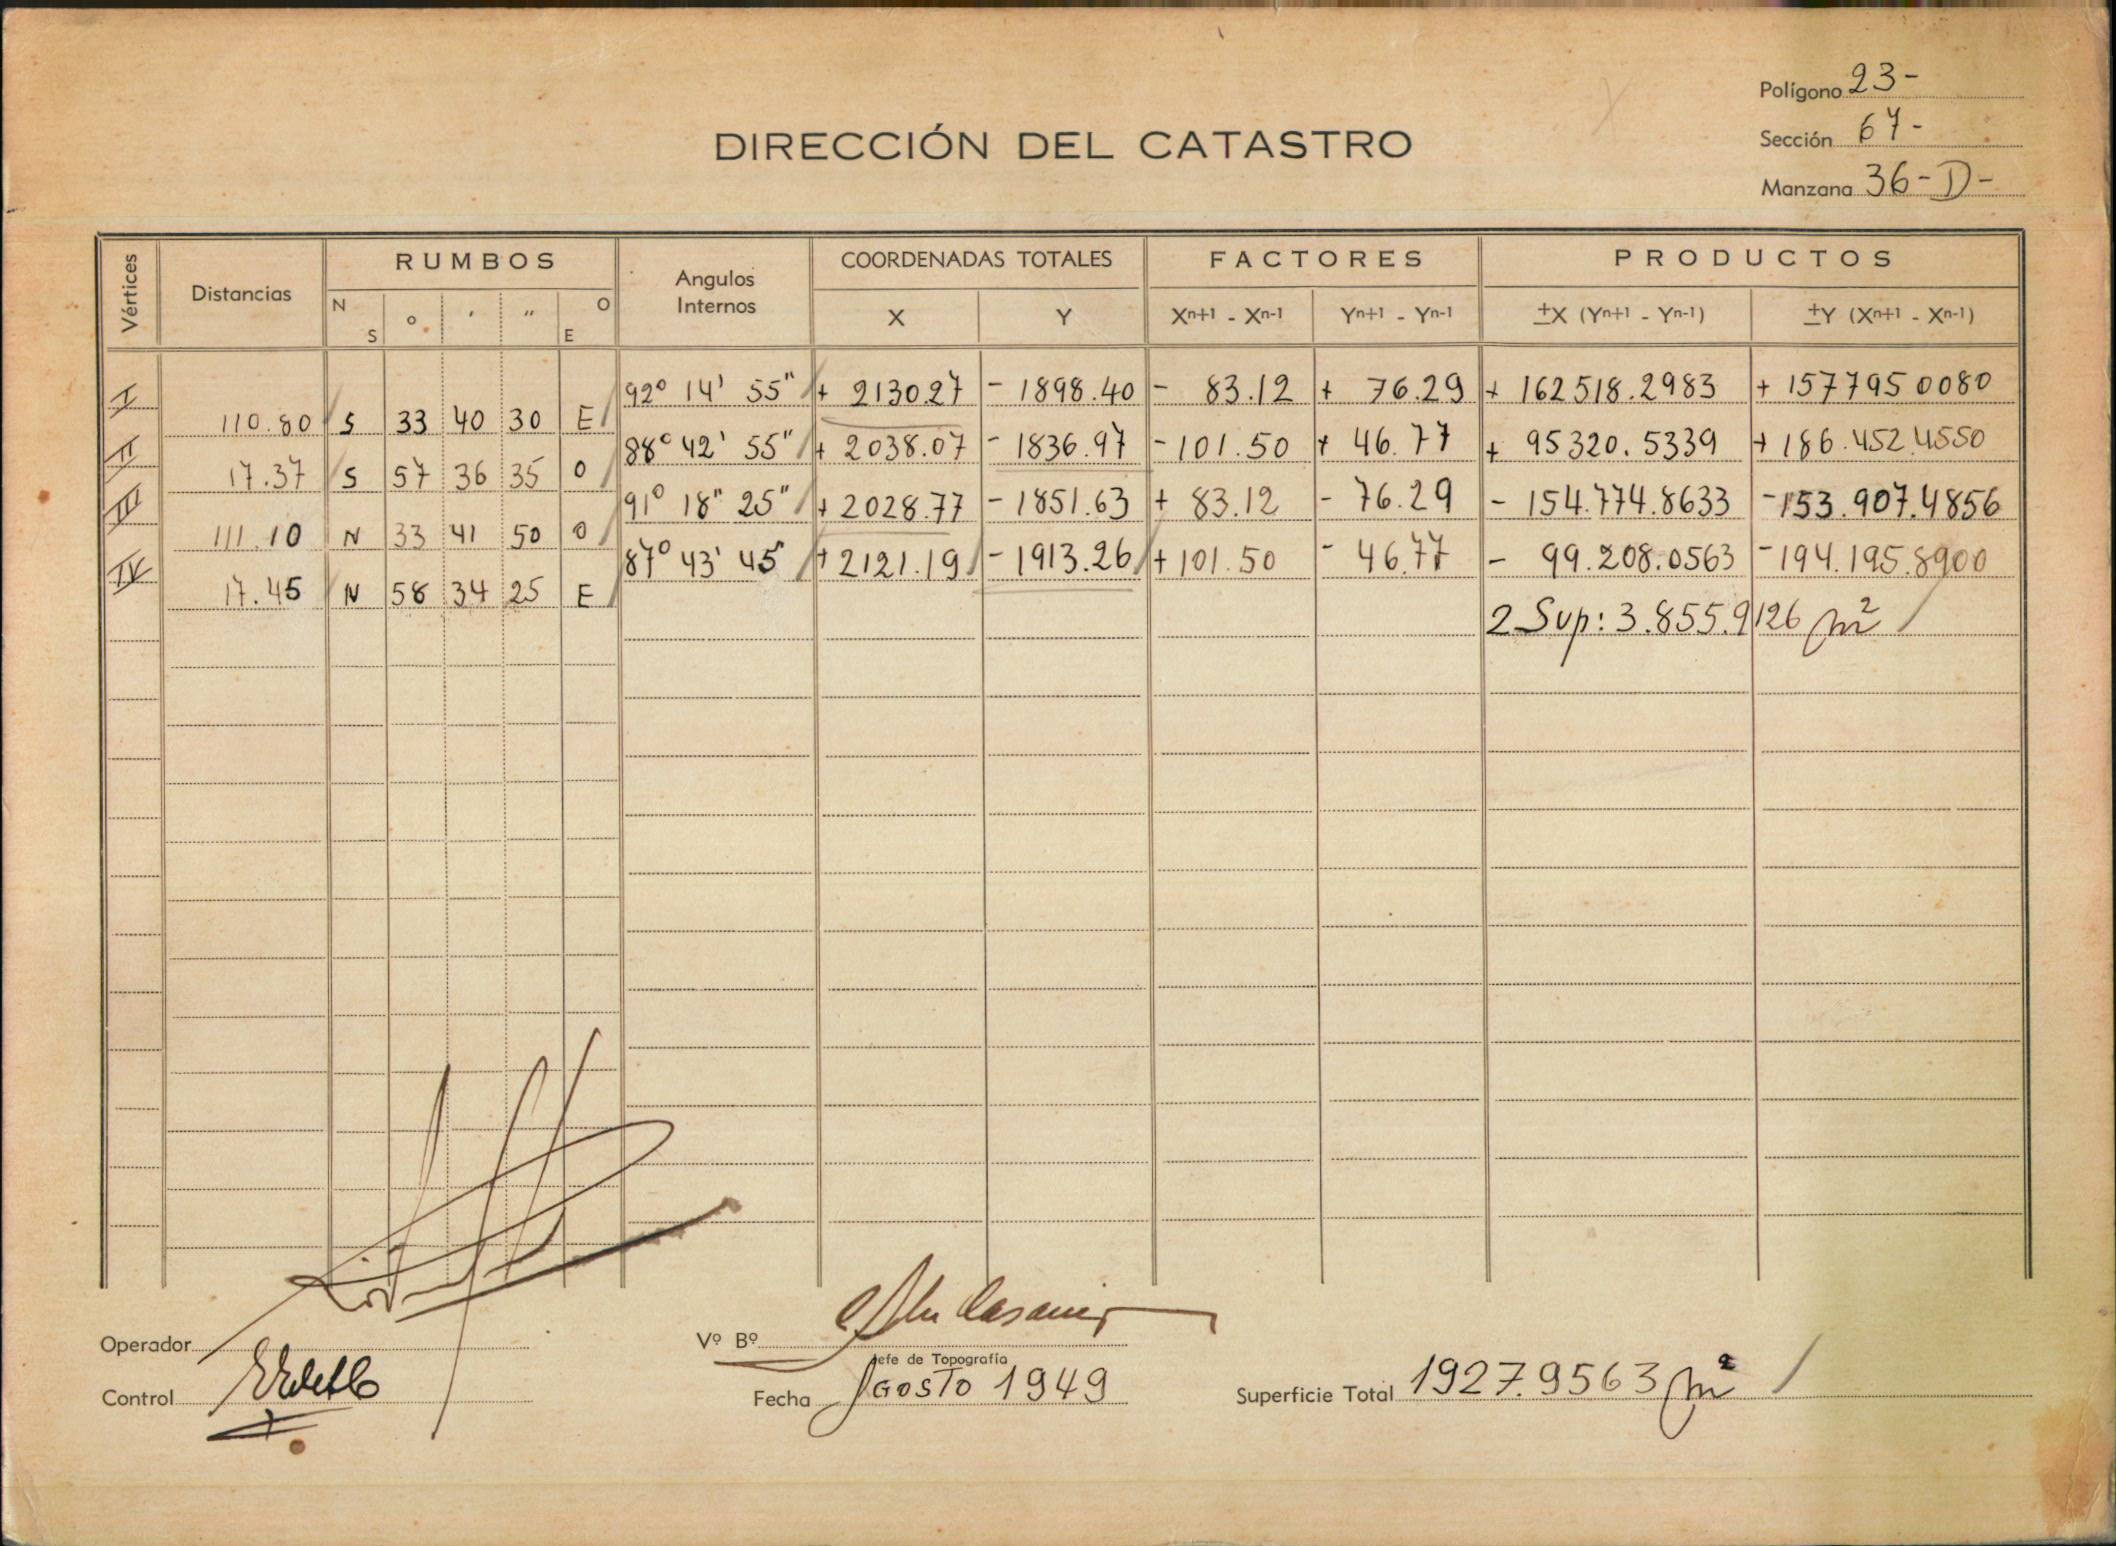 Polígono 23-
Sección 67-
Manzana 36-D-
DIRECCIÓN DEL CATASTRO
Vértices
Distancias
RUMBOS
N S
°
'
"
O E
Angulos
Internos
COORDENADAS TOTALES
X
Y
FACTORES
Xn+1 - Xn-1
Yn+1 - Yn-1
PRODUCTOS
±X (Yn+1 - Yn-1)
±Y (Xn+1 - Xn-1)
I 92° 14' 55" + 2130.27 - 1898.40 - 83.12 + 76.29 + 162518.2983 + 157795 0080
110.80 S 33 40 30 E
II 88° 42' 55" + 2038.07 - 1836.97 - 101.50 + 46.77 + 95320.5339 + 186.452.4550
17.37 S 57 36 35 O
III 91° 18" 25" + 2028.77 - 1851.63 + 83.12 - 76.29 - 154.774.8633 - 153.907.4856
111.10 N 33 41 50 O
IV 87° 43' 45" + 2121.19 - 1913.26 + 101.50 - 46.77 - 99.208.0563 - 194.195.8900
17.45 N 58 34 25 E
2 Sup: 3.855.9126 m²
Operador
Vº Bº
Jefe de Topografía
Control
Fecha Agosto 1949
Superficie Total 1927.9563 m²